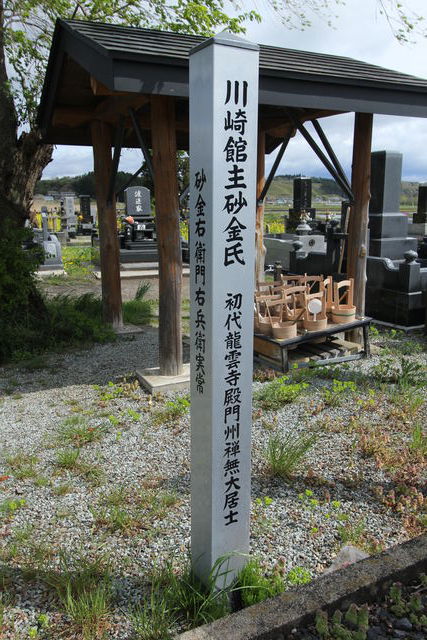 川崎館主砂金氏 初代龍雲寺殿門州禅無大居士
砂金右衛門右兵衛実常